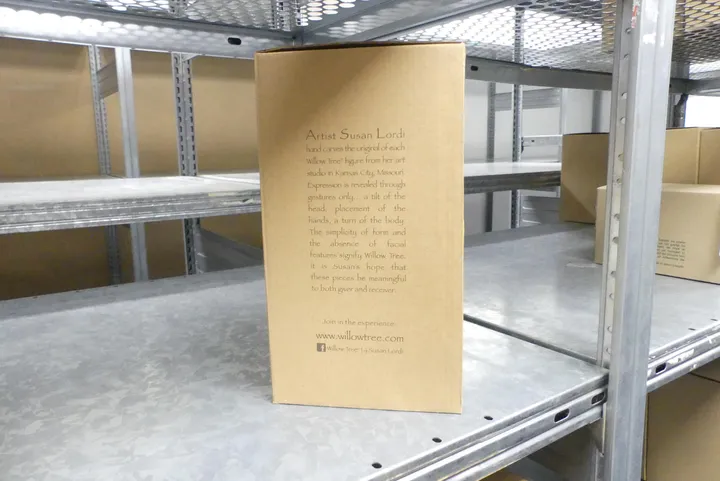 Artist Susan Lordi
hand carves the original of each
Willow Tree® figure from her art
studio in Kansas City, Missouri.
Expression is revealed through
gestures only... a tilt of the
head, placement of the
hands, a turn of the body.
The simplicity of form and
the absence of facial
features signify Willow Tree.
It is Susan's hope that
these pieces be meaningful
to both giver and receiver.
Join in the experience:
www.willowtree.com
Willow Tree® by Susan Lordi